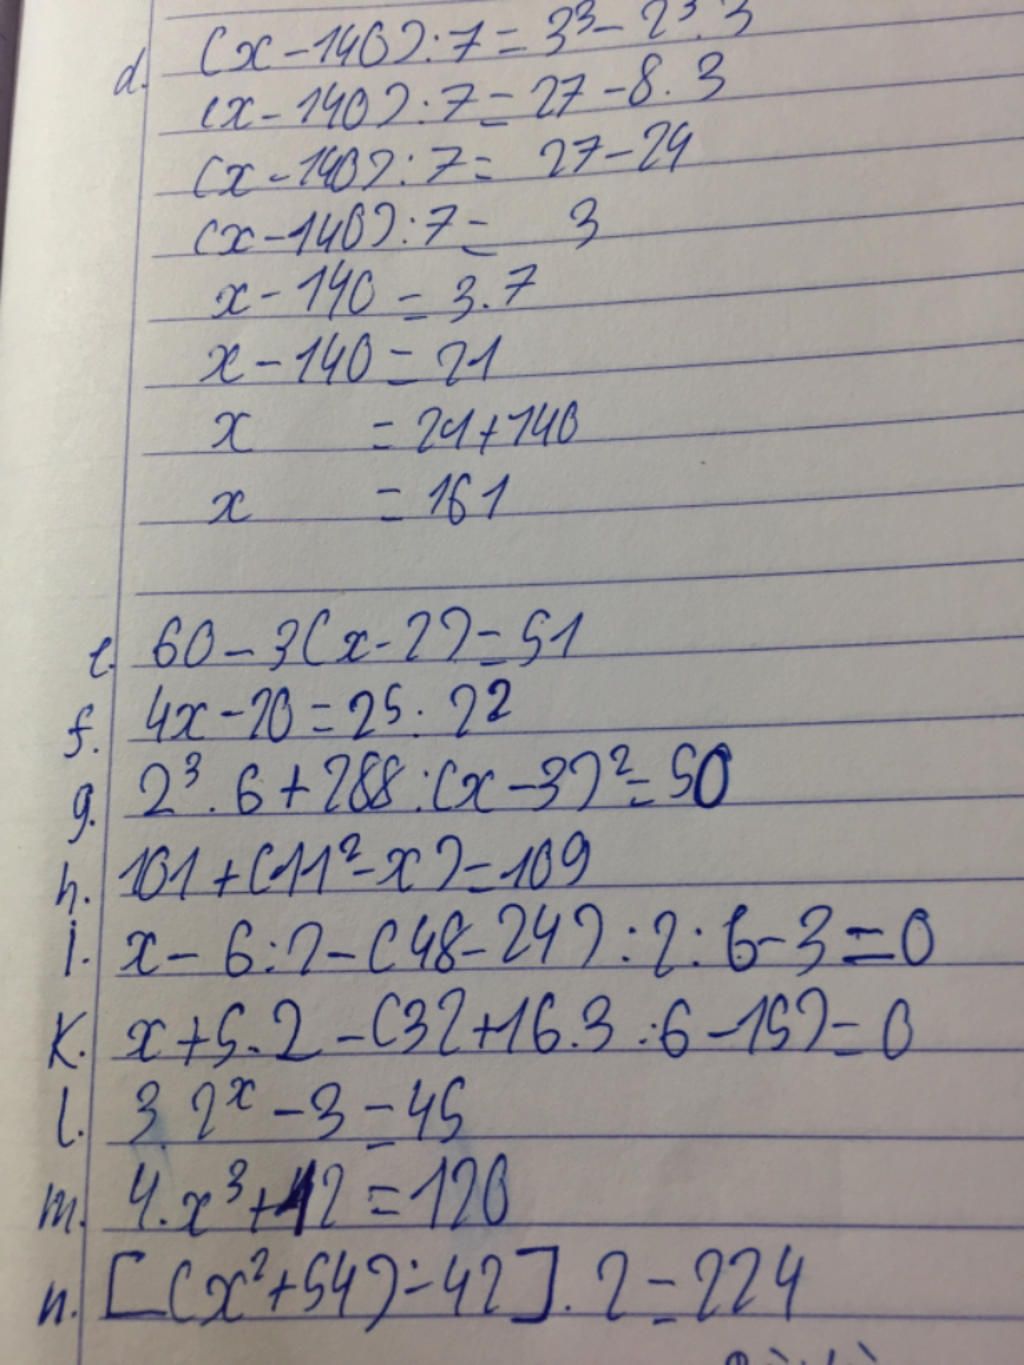 d. (x-140):7=3³-2³.3
(x-140):7=27-8.3
(x-140):7= 27-24
(x-140):7= 3
x-140=3.7
x-140=21
x =21+140
x =161
e. 60-3(x-2)=51
f. 4x-20=25:2²
g. 2³.6+288:(x-3)²=50
h. 101+(11²-x)=109
i. x-6:2-(48-24):2:6-3=0
K. x+5.2-(32+16.3:6-15)=0
l. 3.2ˣ-3=45
m. 4.x³+12=120
n. [(x²+54)-42].2=224